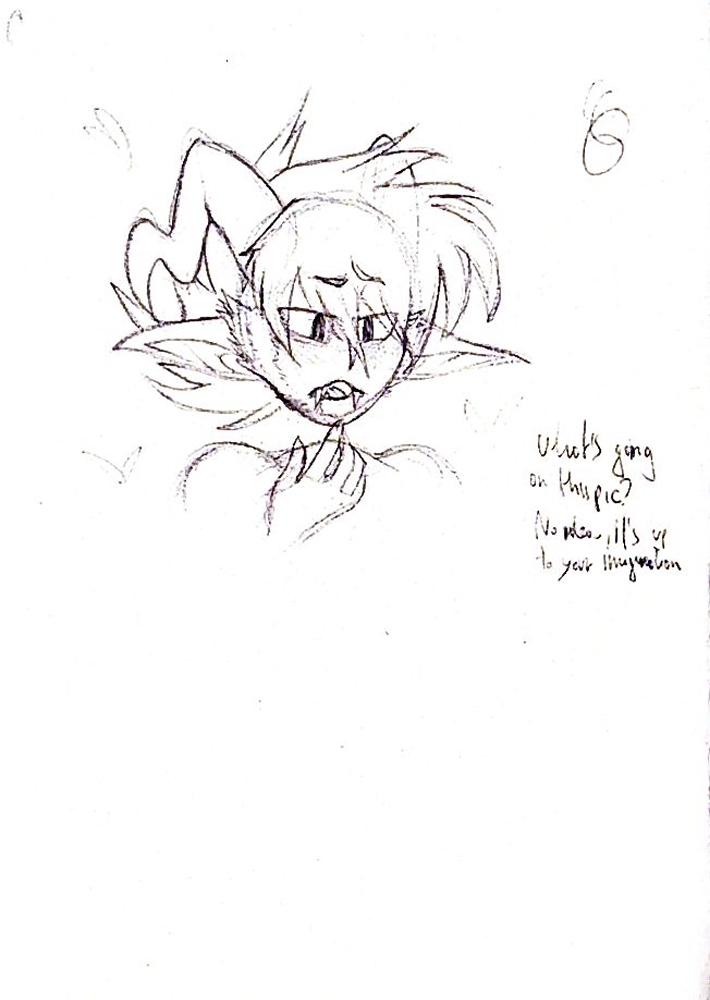 What's going
on this pic?
No idea, it's up
to your imagination